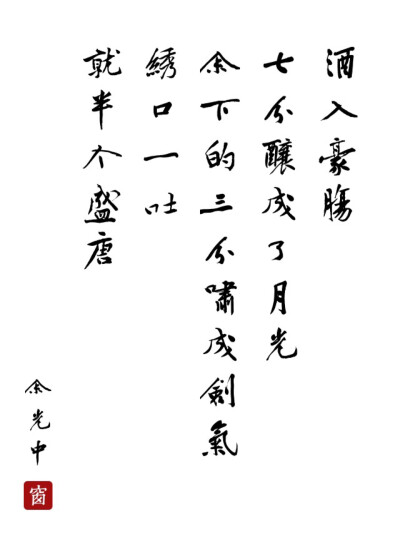 酒入豪腸
七分釀成了月光
余下的三分嘯成劍氣
綉口一吐
就半个盛唐
余光中
窗